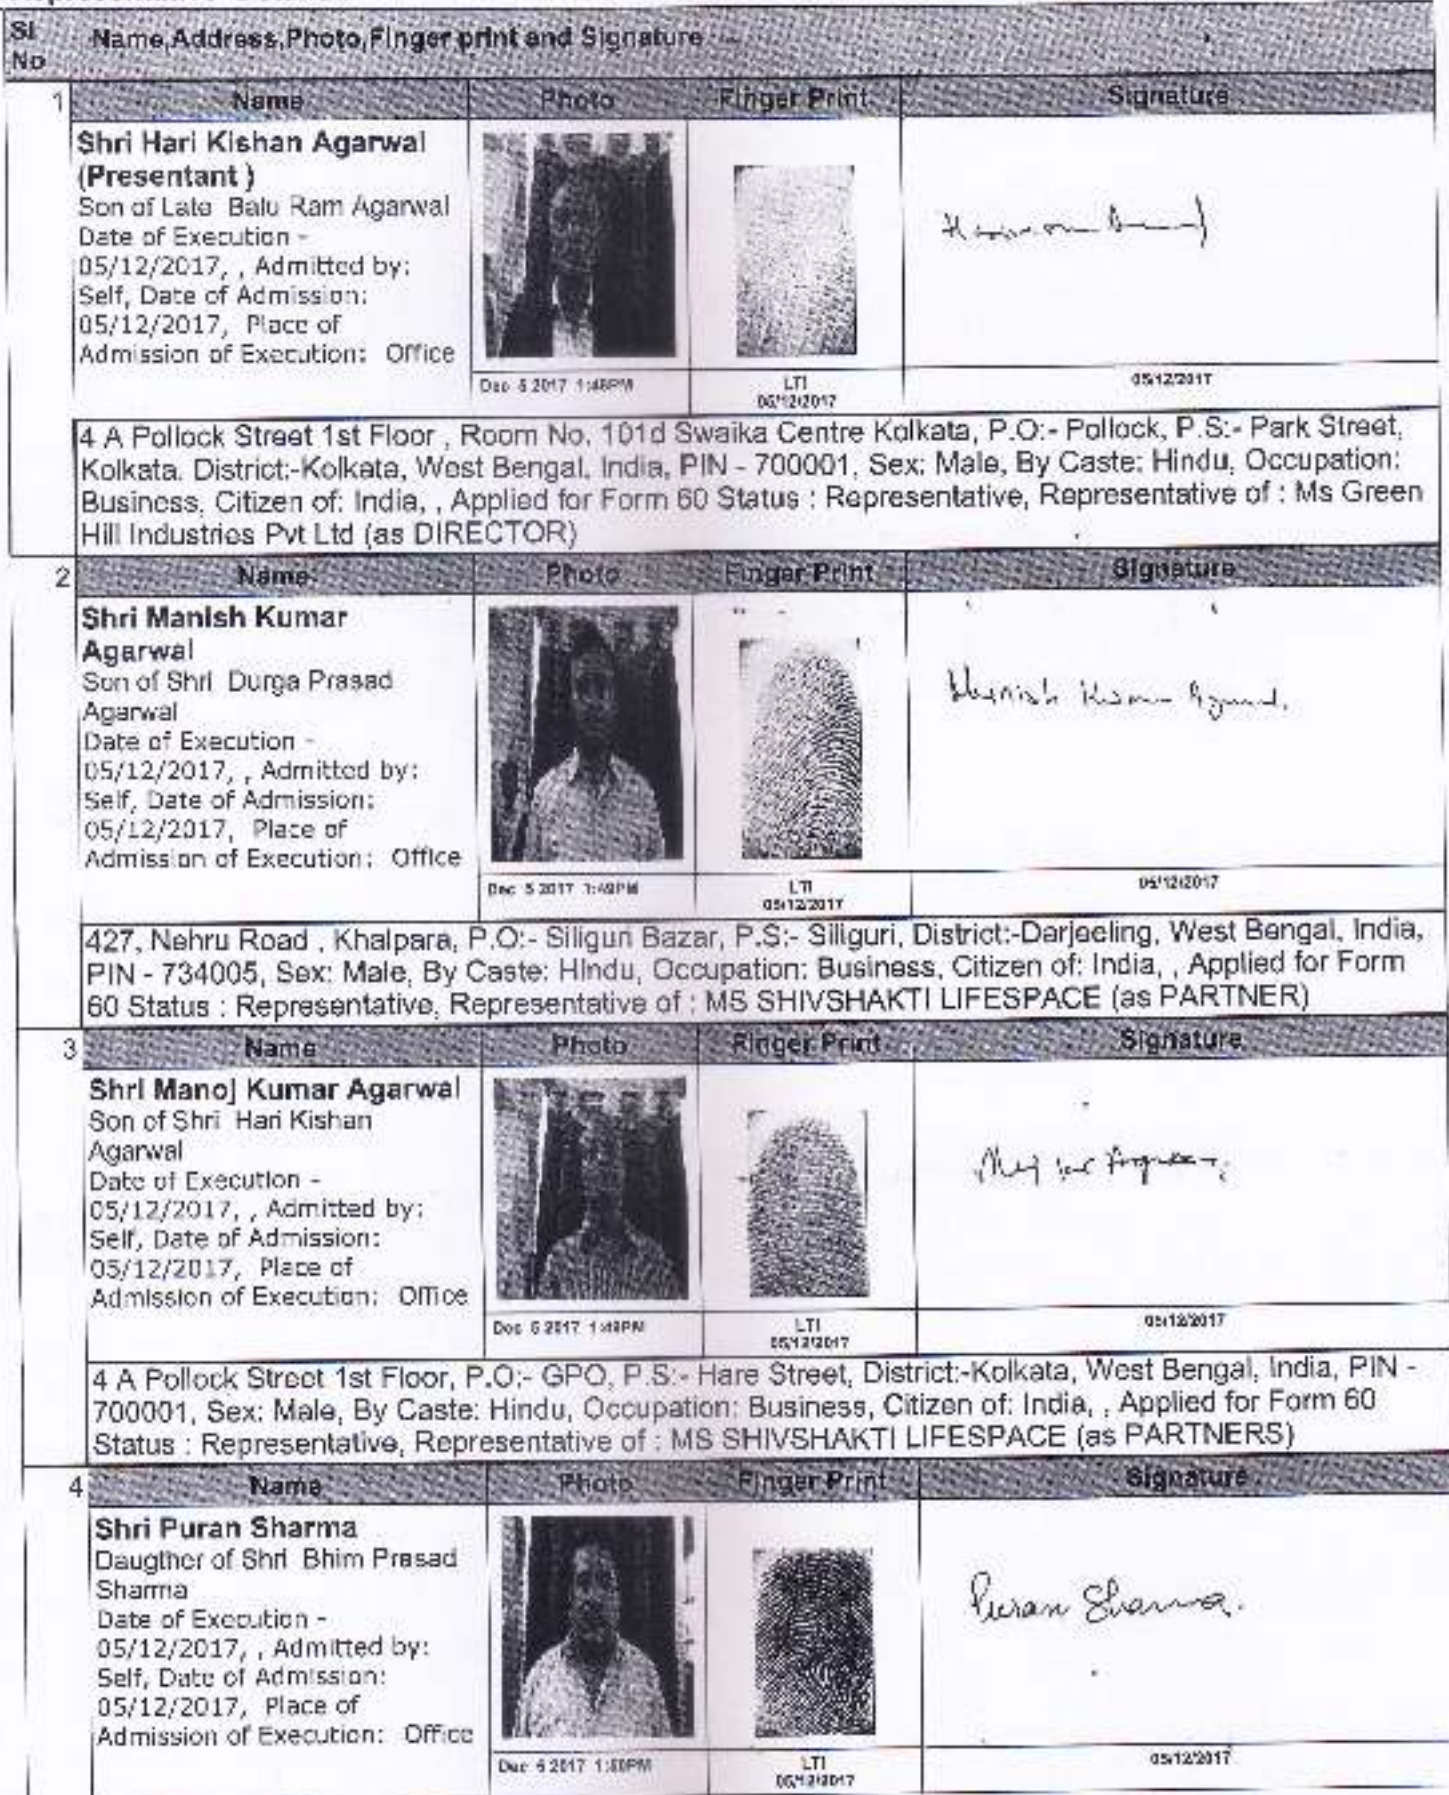 Sl No
Name,Address,Photo,Finger print and Signature
1
Name Photo Finger Print Signature
Shri Hari Kishan Agarwal
(Presentant )
Son of Late Balu Ram Agarwal
Date of Execution -
05/12/2017, , Admitted by:
Self, Date of Admission:
05/12/2017, Place of
Admission of Execution: Office
Dec 5 2017 1:48PM
LTI
05/12/2017
05/12/2017
4 A Pollock Street 1st Floor , Room No. 101d Swaika Centre Kolkata, P.O:- Pollock, P.S:- Park Street,
Kolkata, District:-Kolkata, West Bengal, India, PIN - 700001, Sex: Male, By Caste: Hindu, Occupation:
Business, Citizen of: India, , Applied for Form 60 Status : Representative, Representative of : Ms Green
Hill Industries Pvt Ltd (as DIRECTOR)
2
Name Photo Finger Print Signature
Shri Manish Kumar
Agarwal
Son of Shri Durga Prasad
Agarwal
Date of Execution -
05/12/2017, , Admitted by:
Self, Date of Admission:
05/12/2017, Place of
Admission of Execution: Office
Manish Kumar Agarwal.
Dec 5 2017 1:49PM
LTI
05/12/2017
05/12/2017
427, Nehru Road , Khalpara, P.O:- Siliguri Bazar, P.S:- Siliguri, District:-Darjeeling, West Bengal, India,
PIN - 734005, Sex: Male, By Caste: Hindu, Occupation: Business, Citizen of: India, , Applied for Form
60 Status : Representative, Representative of : MS SHIVSHAKTI LIFESPACE (as PARTNER)
3
Name Photo Finger Print Signature
Shri Manoj Kumar Agarwal
Son of Shri Hari Kishan
Agarwal
Date of Execution -
05/12/2017, , Admitted by:
Self, Date of Admission:
05/12/2017, Place of
Admission of Execution: Office
Dec 5 2017 1:49PM
LTI
05/12/2017
05/12/2017
4 A Pollock Street 1st Floor, P.O:- GPO, P.S:- Hare Street, District:-Kolkata, West Bengal, India, PIN -
700001, Sex: Male, By Caste: Hindu, Occupation: Business, Citizen of: India, , Applied for Form 60
Status : Representative, Representative of : MS SHIVSHAKTI LIFESPACE (as PARTNERS)
4
Name Photo Finger Print Signature
Shri Puran Sharma
Daugther of Shri Bhim Prasad
Sharma
Date of Execution -
05/12/2017, , Admitted by:
Self, Date of Admission:
05/12/2017, Place of
Admission of Execution: Office
Puran Sharma.
Dec 5 2017 1:50PM
LTI
05/12/2017
05/12/2017